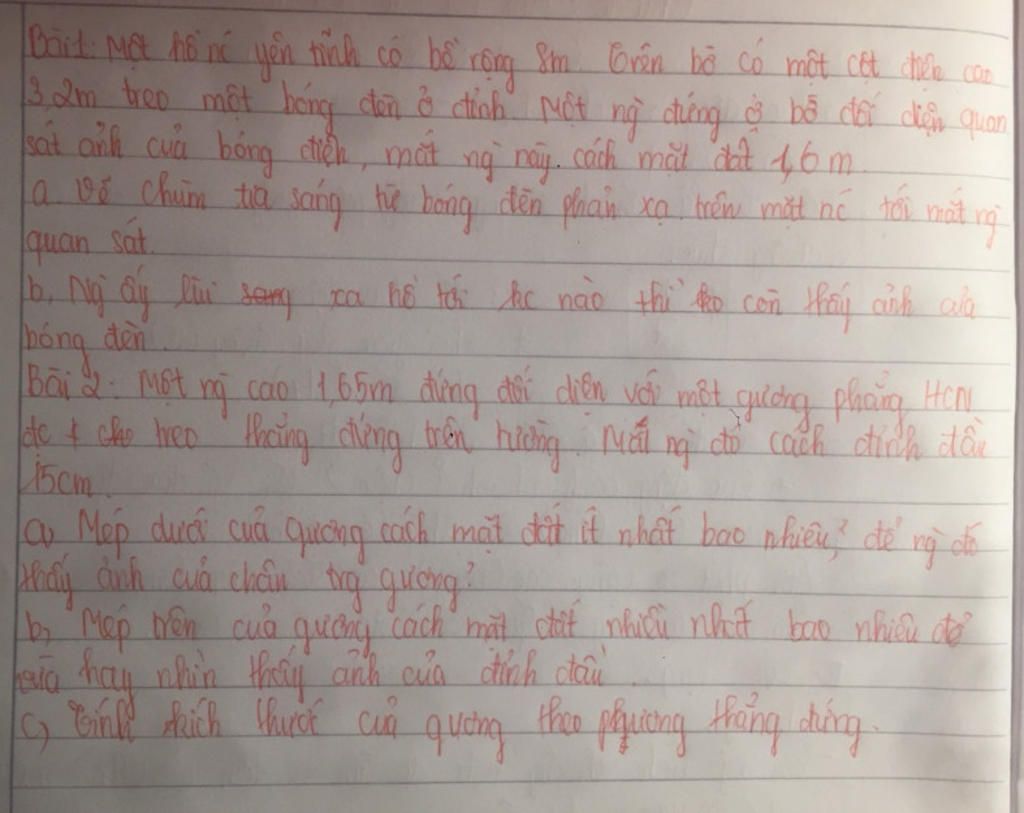 Bài 1: Một hồ nc yên tĩnh có bề rộng 8m. Trên bờ có một cột điện cao
3,2m treo một bóng đèn ở đỉnh. Một ng đứng ở bờ đối diện quan
sát ảnh của bóng điện, mắt ng này cách mặt đất 1,6m.
a. Vẽ chùm tia sáng từ bóng đèn phản xạ trên mặt nc tới mắt ng
quan sát.
b, Ng ấy lùi xa hồ tới lúc nào thì ko còn thấy ảnh của
bóng đèn.
Bài 2: Một ng cao 1,65m đứng đối diện với một gương phẳng HCN
đc treo thẳng đứng trên tường. Mắt ng đó cách đỉnh đầu
15cm.
a) Mép dưới của gương cách mặt đất ít nhất bao nhiêu, để ng đó
thấy ảnh của chân trg gương?
b, Mép trên của gương cách mặt đất nhiều nhất bao nhiêu để
hay nhìn thấy ảnh của đỉnh đầu.
c) Tính kích thước của gương theo phương thẳng đứng.